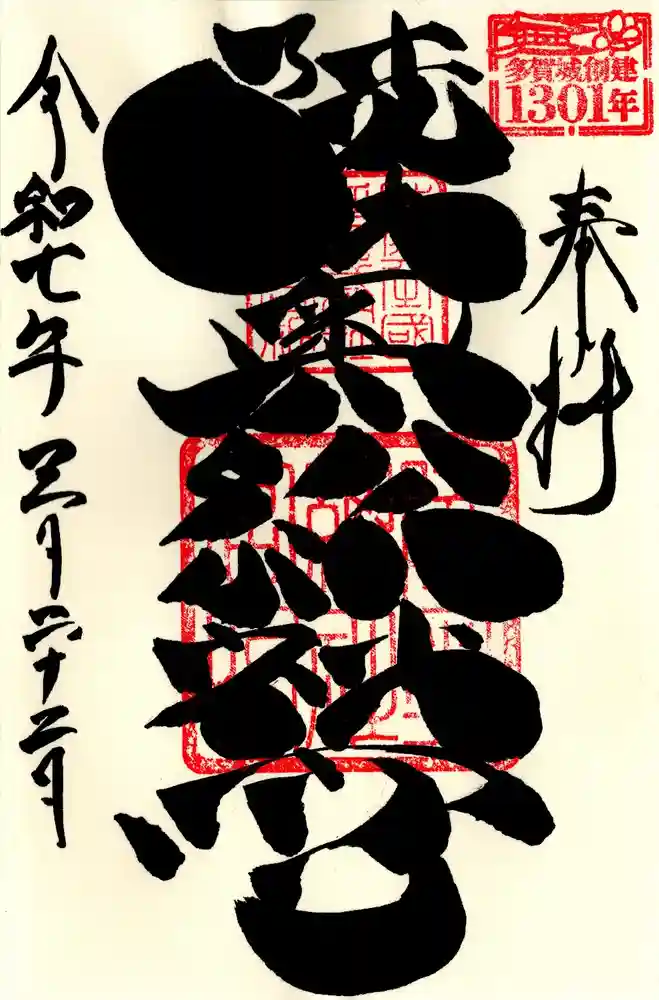 多賀城創建
1301年
奉拝
陸奥総社宮
令和七年三月二十二日